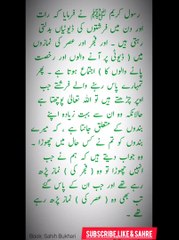 رسول کریم ﷺ نے فرمایا کہ رات
اور دن میں فرشتوں کی ڈیوٹیاں بدلتی
رہتی ہیں ۔ اور فجر اور عصر کی نمازوں
میں ( ڈیوٹی پر آنے والوں اور رخصت
پانے والوں کا ) اجتماع ہوتا ہے ۔ پھر
تمہارے پاس رہنے والے فرشتے جب
اوپر چڑھتے ہیں تو اللہ تعالیٰ پوچھتا ہے
حالانکہ وہ ان سے بہت زیادہ اپنے
بندوں کے متعلق جانتا ہے ، کہ میرے
بندوں کو تم نے کس حال میں چھوڑا ۔
وہ جواب دیتے ہیں کہ ہم نے جب
انہیں چھوڑا تو وہ ( فجر کی ) نماز پڑھ
رہے تھے اور جب ان کے پاس گئے
تب بھی وہ ( عصر کی ) نماز پڑھ رہے
تھے ۔
Book, Sahih Bukhari
SUBSCRIBE,LIKE & SAHRE